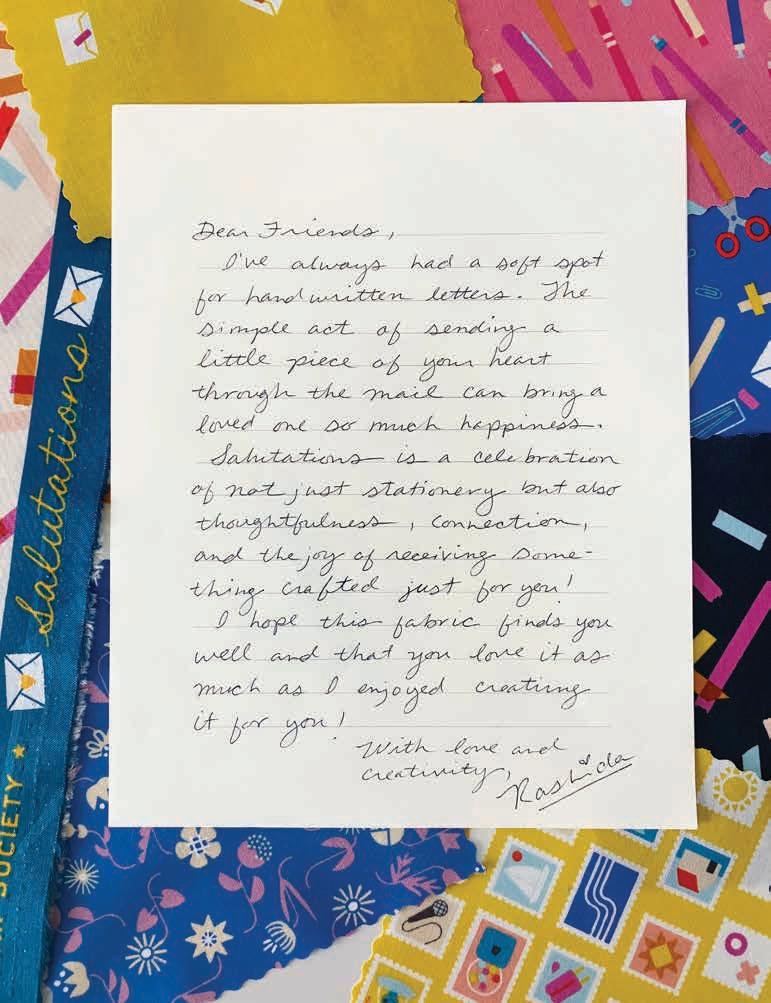 Dear Friends,
I've always had a soft spot
for handwritten letters. The
simple act of sending a
little piece of your heart
through the mail can bring a
loved one so much happiness.
Salutations is a celebration
of not just stationery but also
thoughtfulness, connection,
and the joy of receiving some-
thing crafted just for you!
I hope this fabric finds you
well and that you love it as
much as I enjoyed creating
it for you!
With love and
creativity,
Rashida
Salutations
SOCIETY